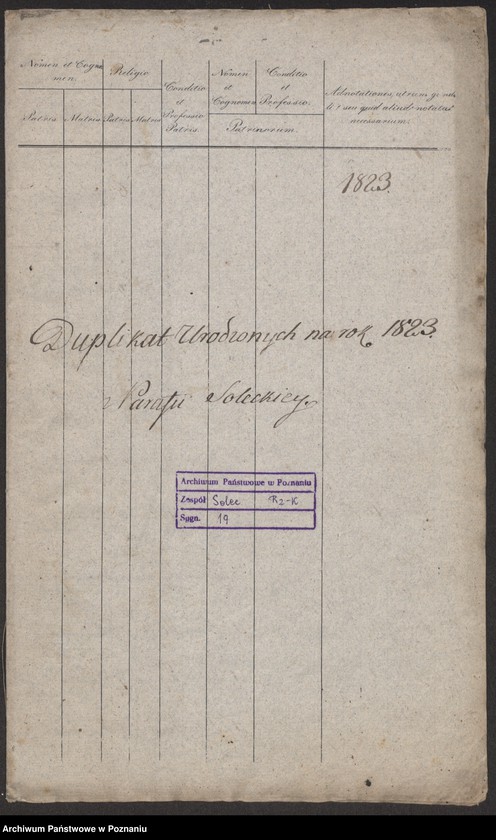 Nomen et Cogno
men.
Religio
Conditio
et
Professio
Patris.
Nomen
et
Cognomen
Conditio
et
Professio.
Patrinorum.
Adnotationes, utrum ge
li? seu quid aliud notatus
necessarium.
Patris
Matris
Patris
Matris
1823.
Duplikat Urodzonych na rok 1823.
z Parafii Soleckiey.
Archiwum Państwowe w Poznaniu
Zespół Solec Rz-K
Sygn. 19
Archiwum Państwowe w Poznaniu